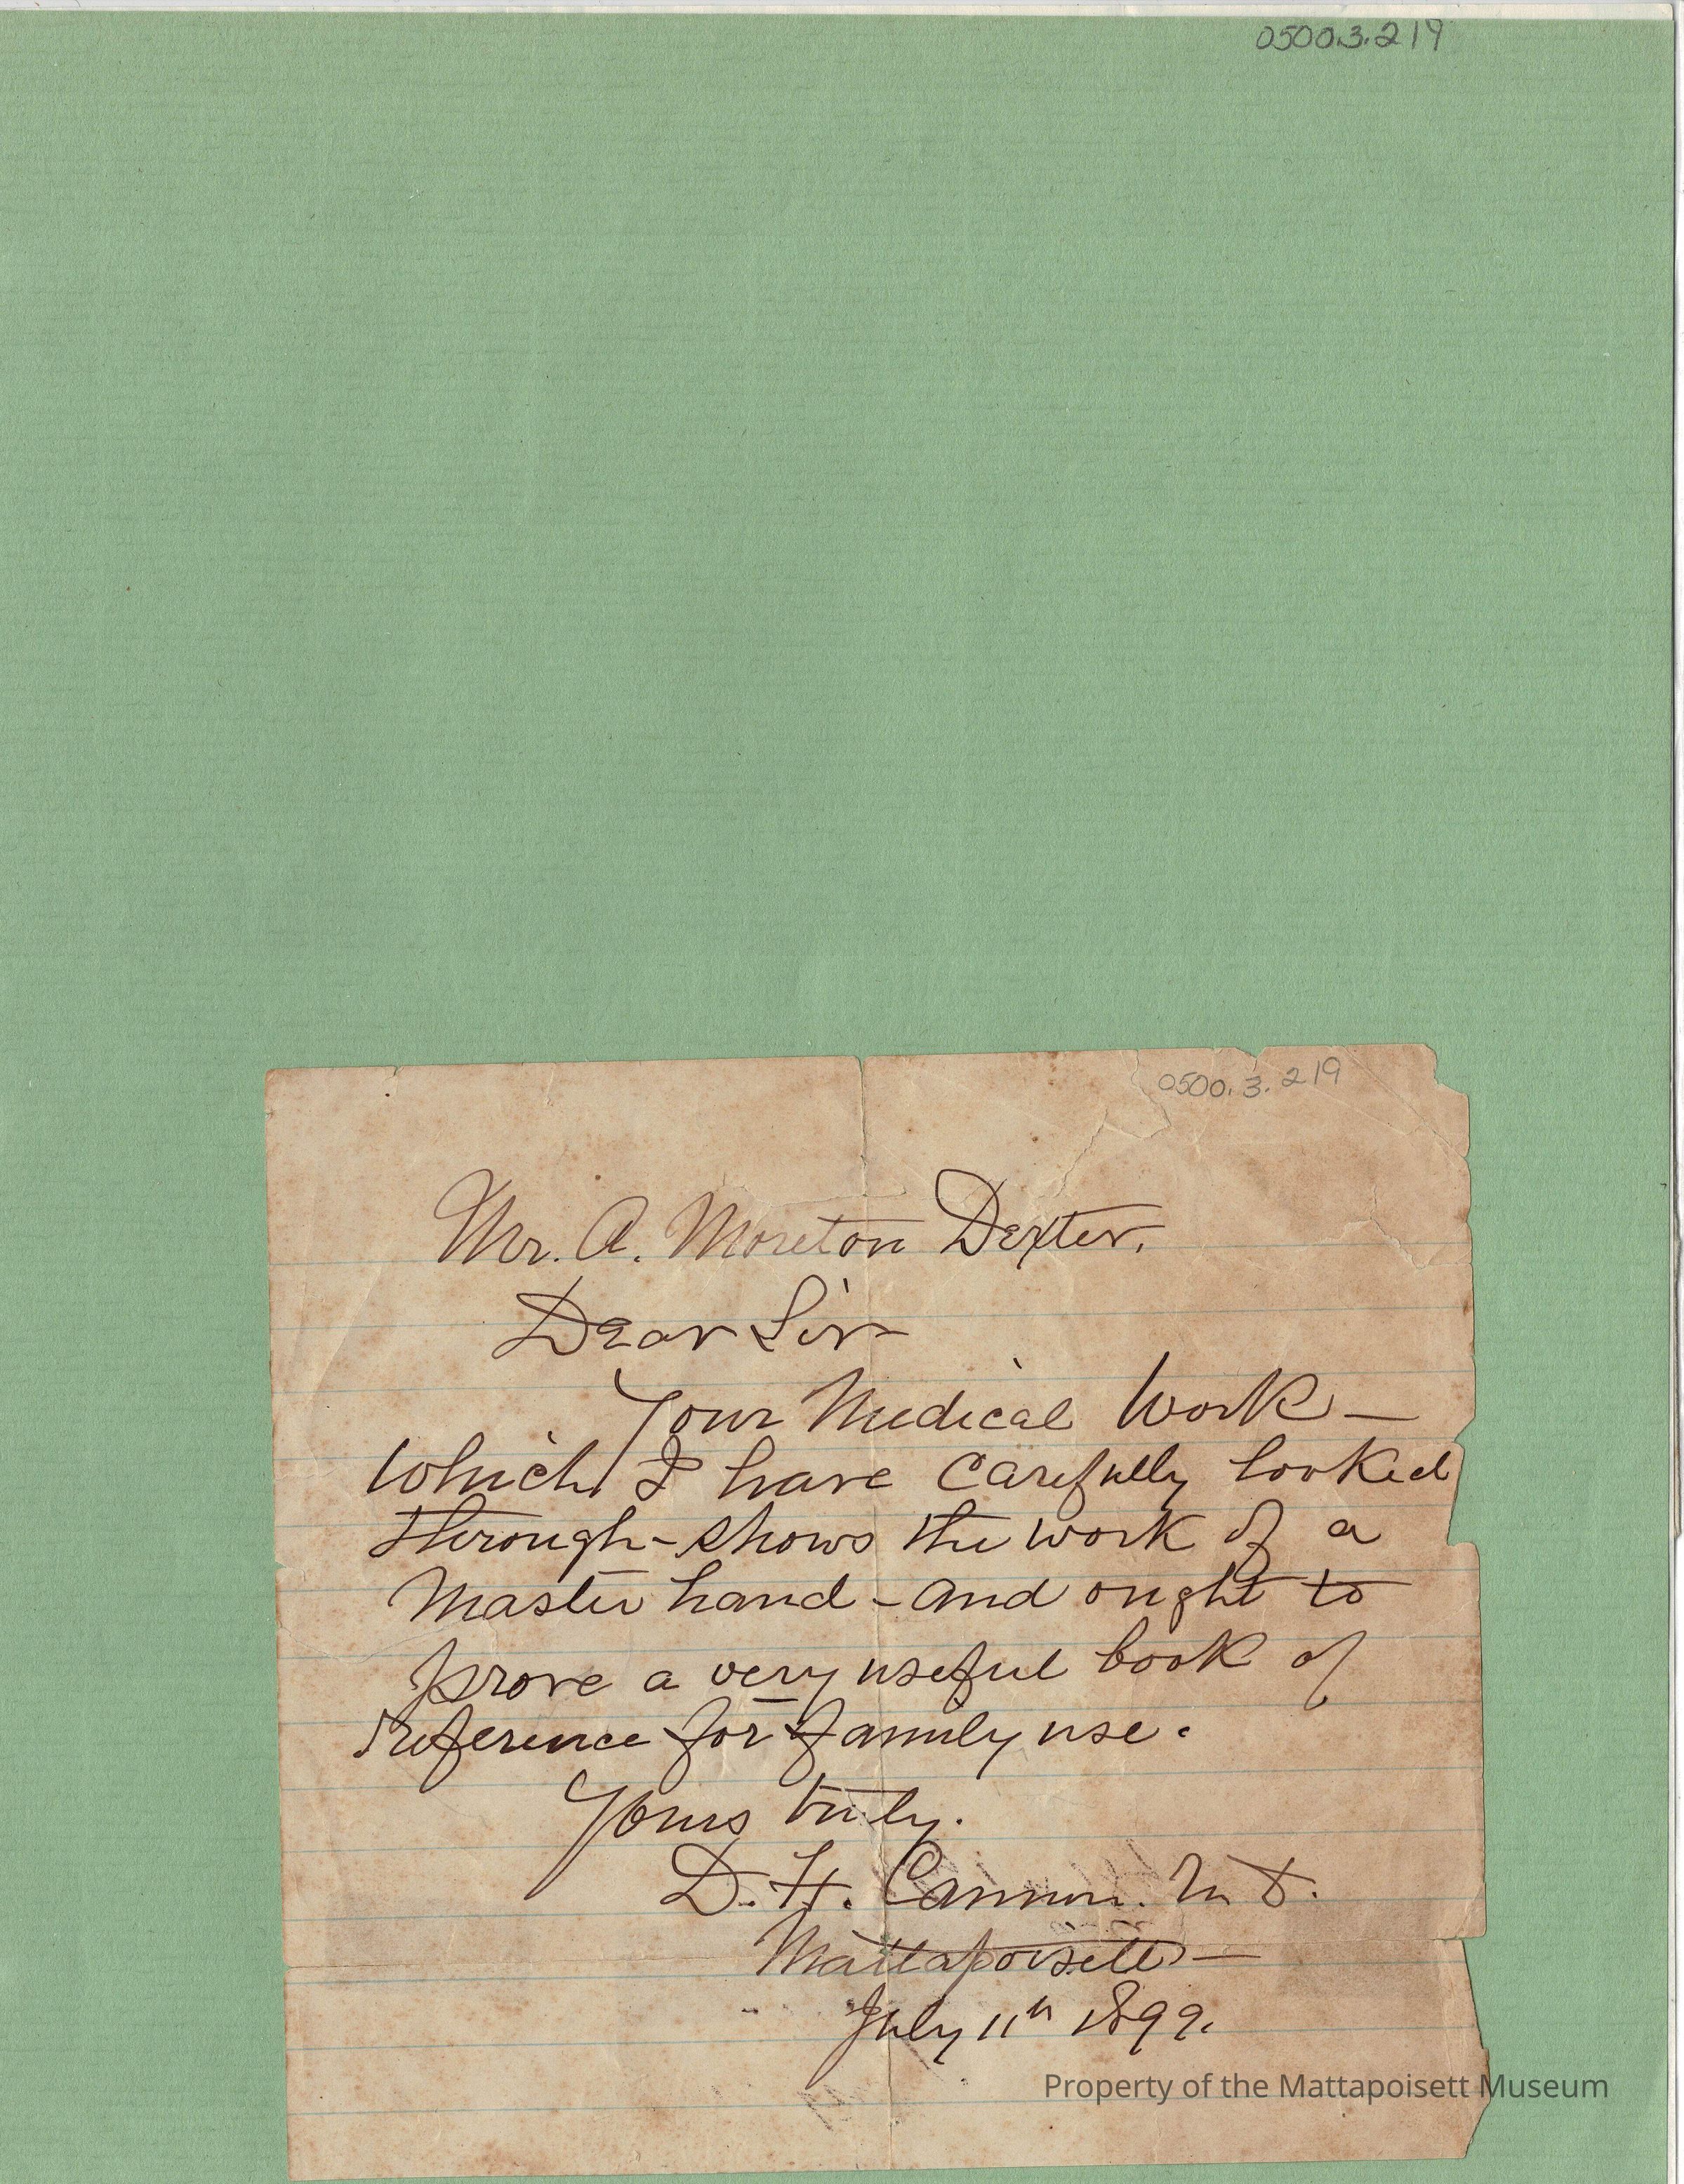 0500.3.219
0500.3.219
Mr. A. Moreton Dexter.
Dear Sir
Your Medical Work —
which I have carefully looked
through - shows the work of a
Master hand - and ought to
prove a very useful book of
reference for family use.
Yours truly.
D. H. Cannon. M D.
Mattapoisett —
July 11th 1899.
Property of the Mattapoisett Museum